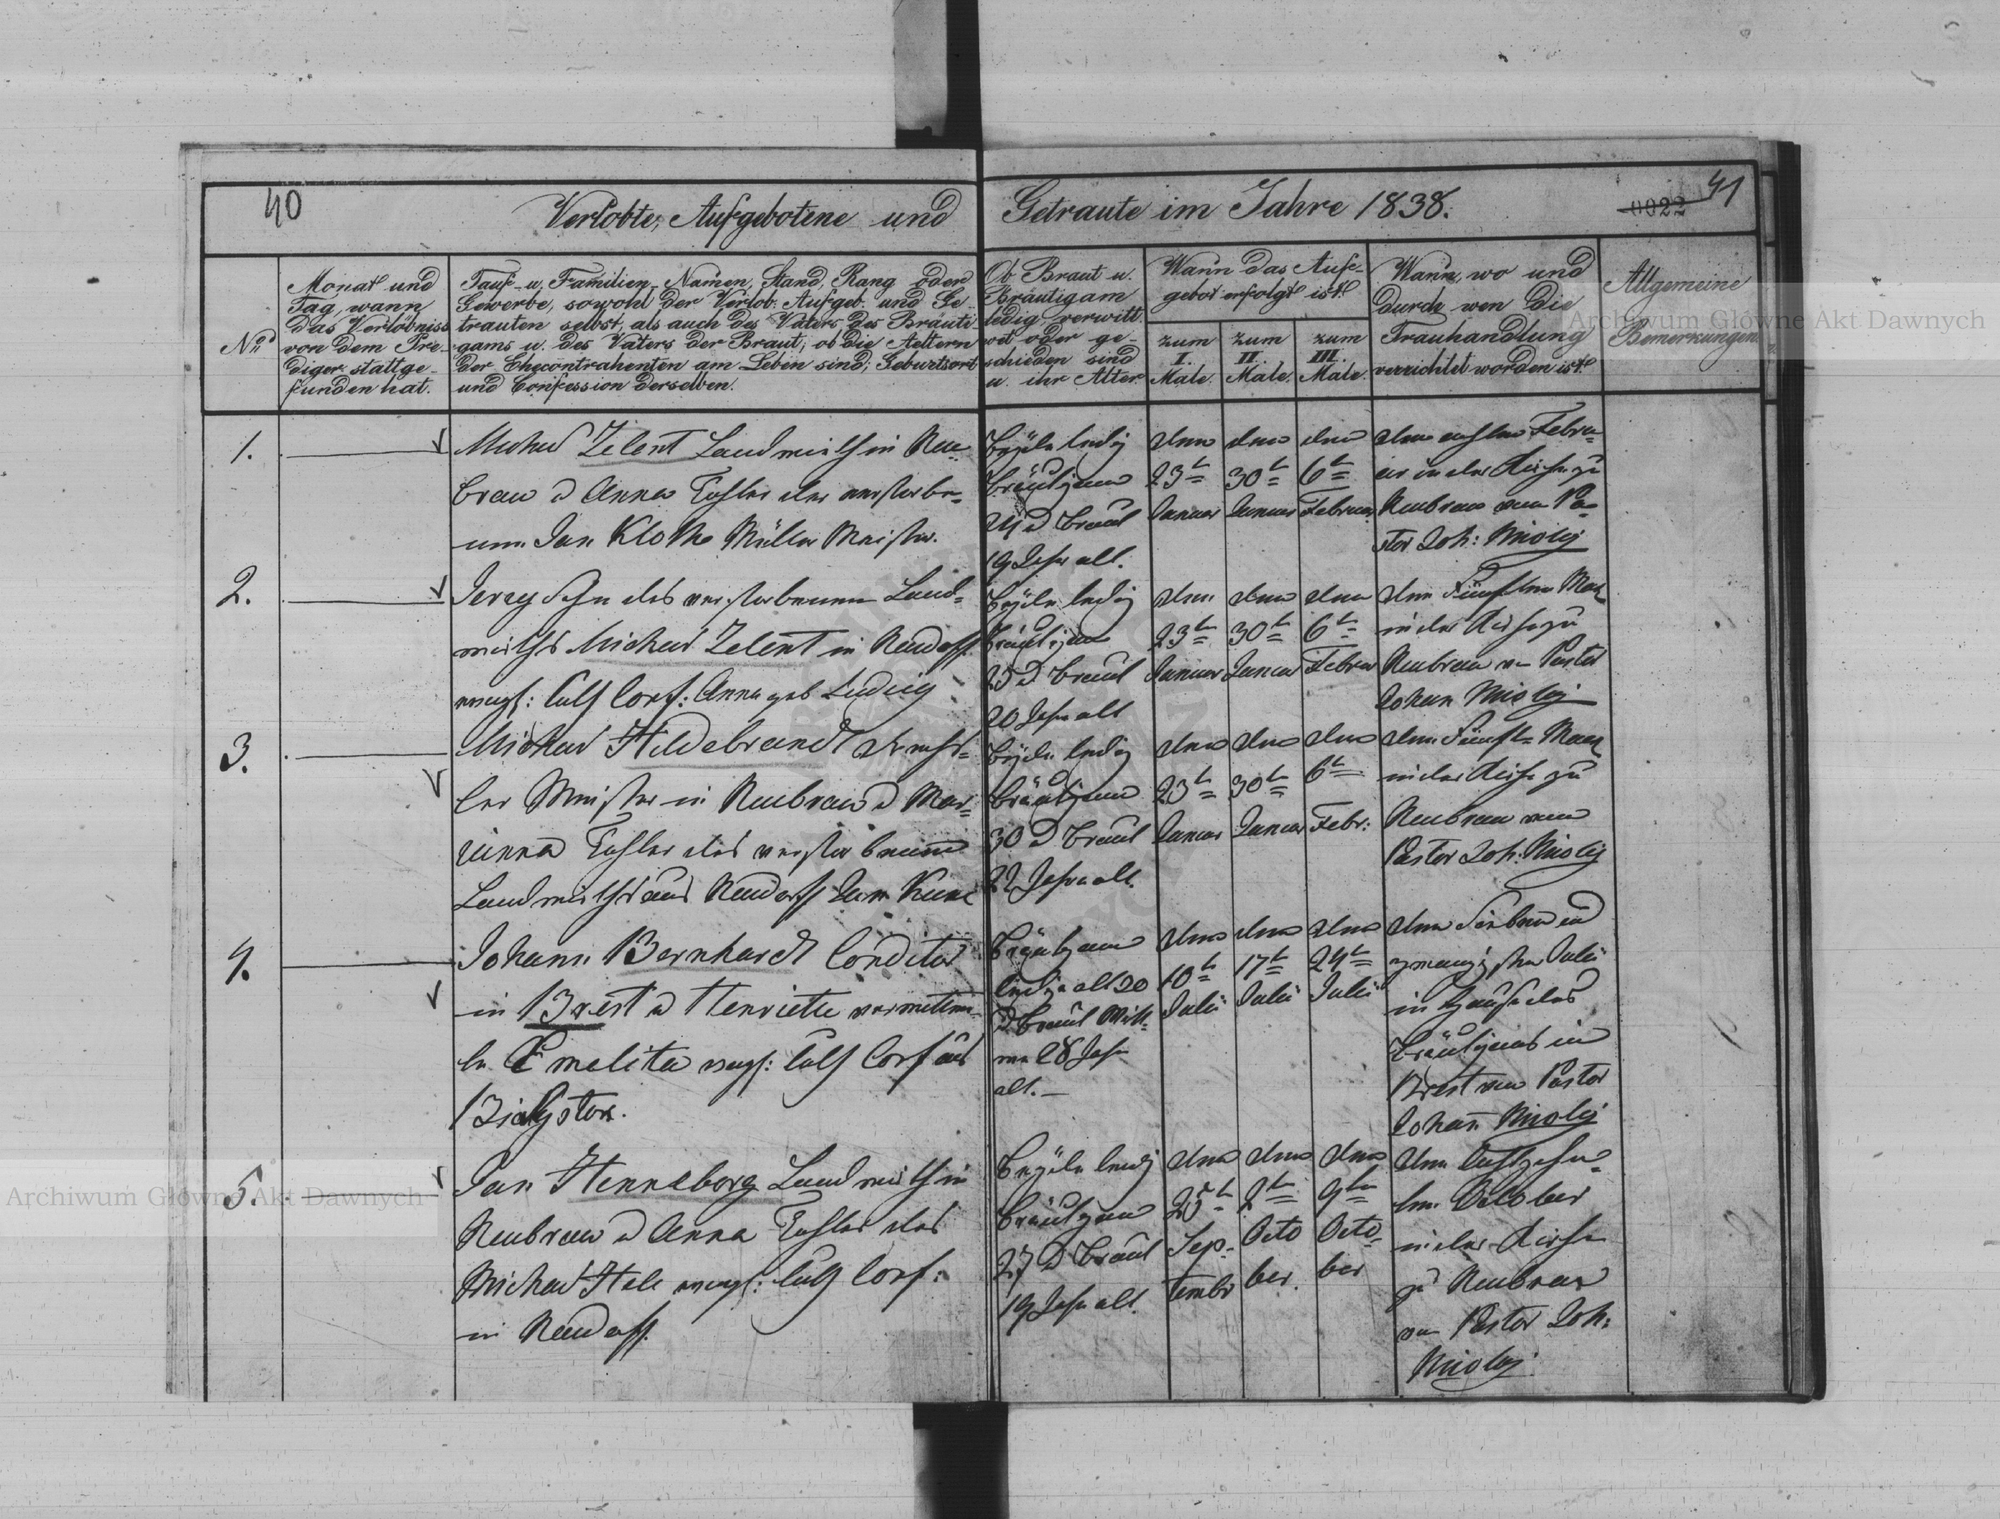 40
Verlobte, Aufgebotene und
Getraute im Jahre 1838.
0022
41
No
Monat und
Tag, wann
das Verlöbniss
von dem Pre-
diger stattge-
funden hat.
Tauf- u. Familien-Namen, Stand, Rang oder
Gewerbe, sowohl der Verlob. Aufgeb. und Ge-
trauten selbst, als auch des Vaters des Bräuti-
gams u. des Vaters der Braut; ob die Aeltern
der Ehecontrahenten am Leben sind; Geburtsort
und Confession derselben.
Ob Braut u.
Bräutigam
ledig verwitt-
wet oder ge-
schieden sind
u. ihr Alter.
Wann das Aufe-
gebot erfolgt ist.
zum
I.
Male.
zum
II.
Male.
zum
III.
Male.
Wann, wo und
durch wen die
Trauhandlung
verrichtet worden ist.
Allgemeine
Bemerkungen
1.
Michael Zelent Landwirth in Neu-
brow d Anna Tochter des verstorbe-
nen Jan Kloth Müller Meister.
Beyde ledig
Bräutigam
24 d Braut
19 Jahr alt.
den
23t
Januar
den
30t
Januar
den
6t
Februar
den Febru-
ar in der Kirche zu
Neubrow vom Pa-
stor Joh:
2.
Jerzy Sohn des verstorbenen Land-
wirths Michael Zelent in Neudorff
evang: Luth Conf: Anna geb Ludwig
Beyde ledig
Bräutigam
25 d Braut
20 Jahr alt
den
23t
Januar
den
30t
Januar
den
6t
Februar
den Fünften
in der Kirche zu
Neubrow v Pastor
Johan
3.
Michael Hildebrandt
ler Meister in Neubrow d Mar-
ianna Tochter des verstorbenen
Landwirths aus Neudorff
Beyde ledig
Bräutigam
30 d Braut
22 Jahr alt.
den
23t
Januar
den
30t
Januar
den
6t
Febr:
den Fünft
in der Kirche zu
Neubrow vom
Pastor Joh:
4.
Johann Bernhardt Conditor
in Brest d Henriette verwittwe-
te Emelita evang: Luth Conf aus
Bialystok.
Bräutigam
ledig alt 30
d Braut Witt-
we 28 Jahr
alt.
den
10t
Julii
den
17t
Julii
den
24t
Julii
den Sieben und
zwanzigsten Julii
in Hause des
Bräutigams in
Brest vom Pastor
Johan
5.
Jan Henneborg Landwirth in
Neubrow d Anna Tochter des
Michael evang: Luth Conf:
in Neudorff.
Beyde ledig
Bräutigam
27 d Braut
19 Jahr alt.
den
25t
Sep-
tembr
den
2t
Octo
ber.
den
9ten
Octo-
ber
den Achtzehn-
ten October
in der Kirche
zu Neubrow
von Pastor Joh:
Archiwum Główne Akt Dawnych
Archiwum Główne Akt Dawnych